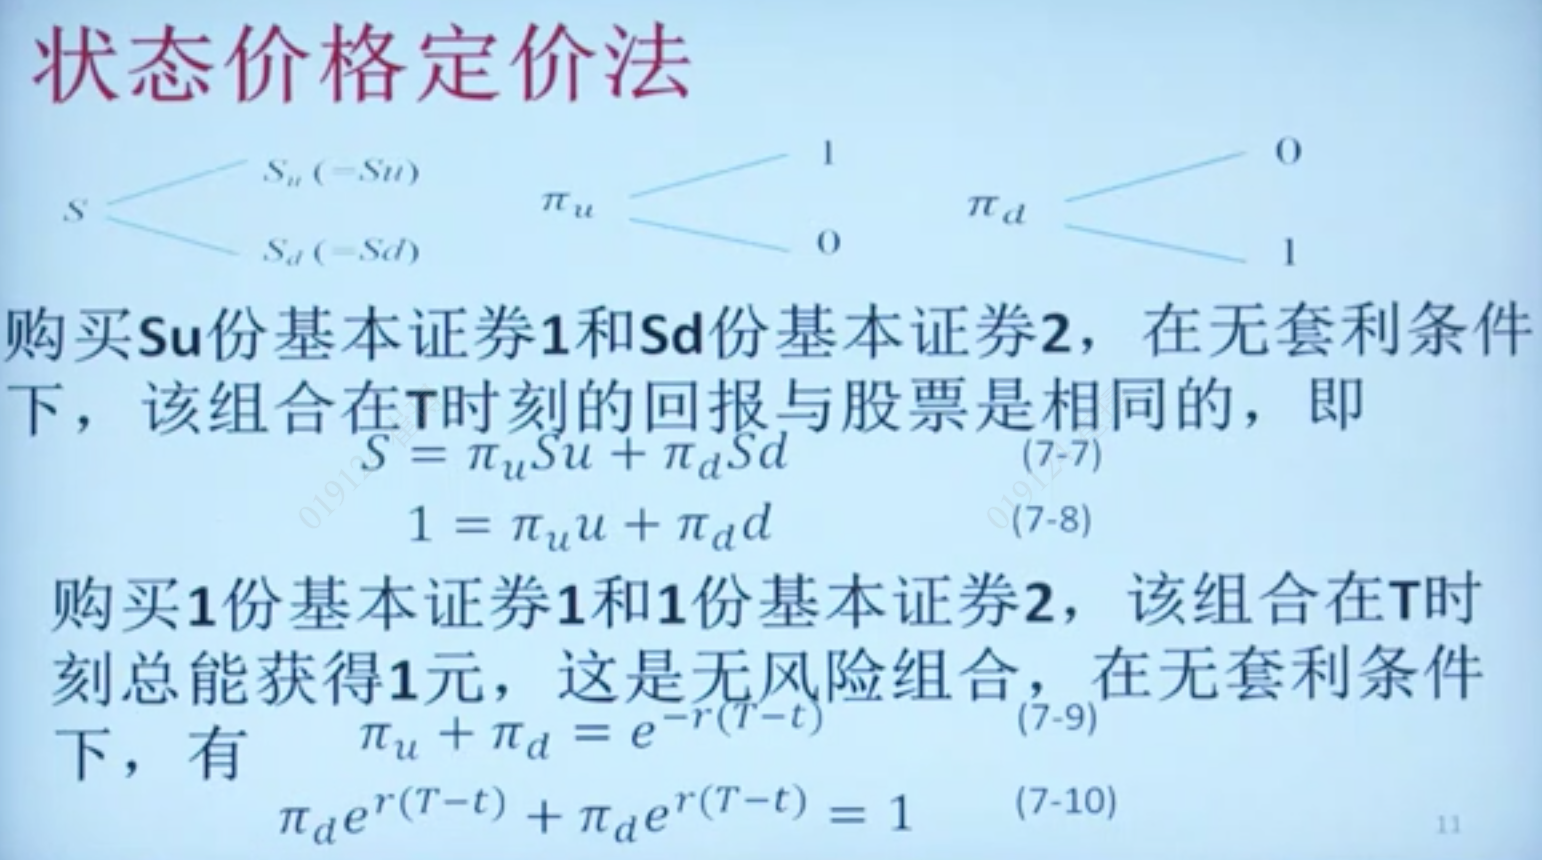 状态价格定价法
S
Su (=Su)
Sd (=Sd)
πu
1
0
πd
0
1
购买Su份基本证券1和Sd份基本证券2，在无套利条件
下，该组合在T时刻的回报与股票是相同的，即
S = πuSu + πdSd (7-7)
1 = πuu + πdd (7-8)
购买1份基本证券1和1份基本证券2，该组合在T时
刻总能获得1元，这是无风险组合，在无套利条件
下，有 πu + πd = e^−r(T−t) (7-9)
πde^r(T−t) + πde^r(T−t) = 1 (7-10)
11